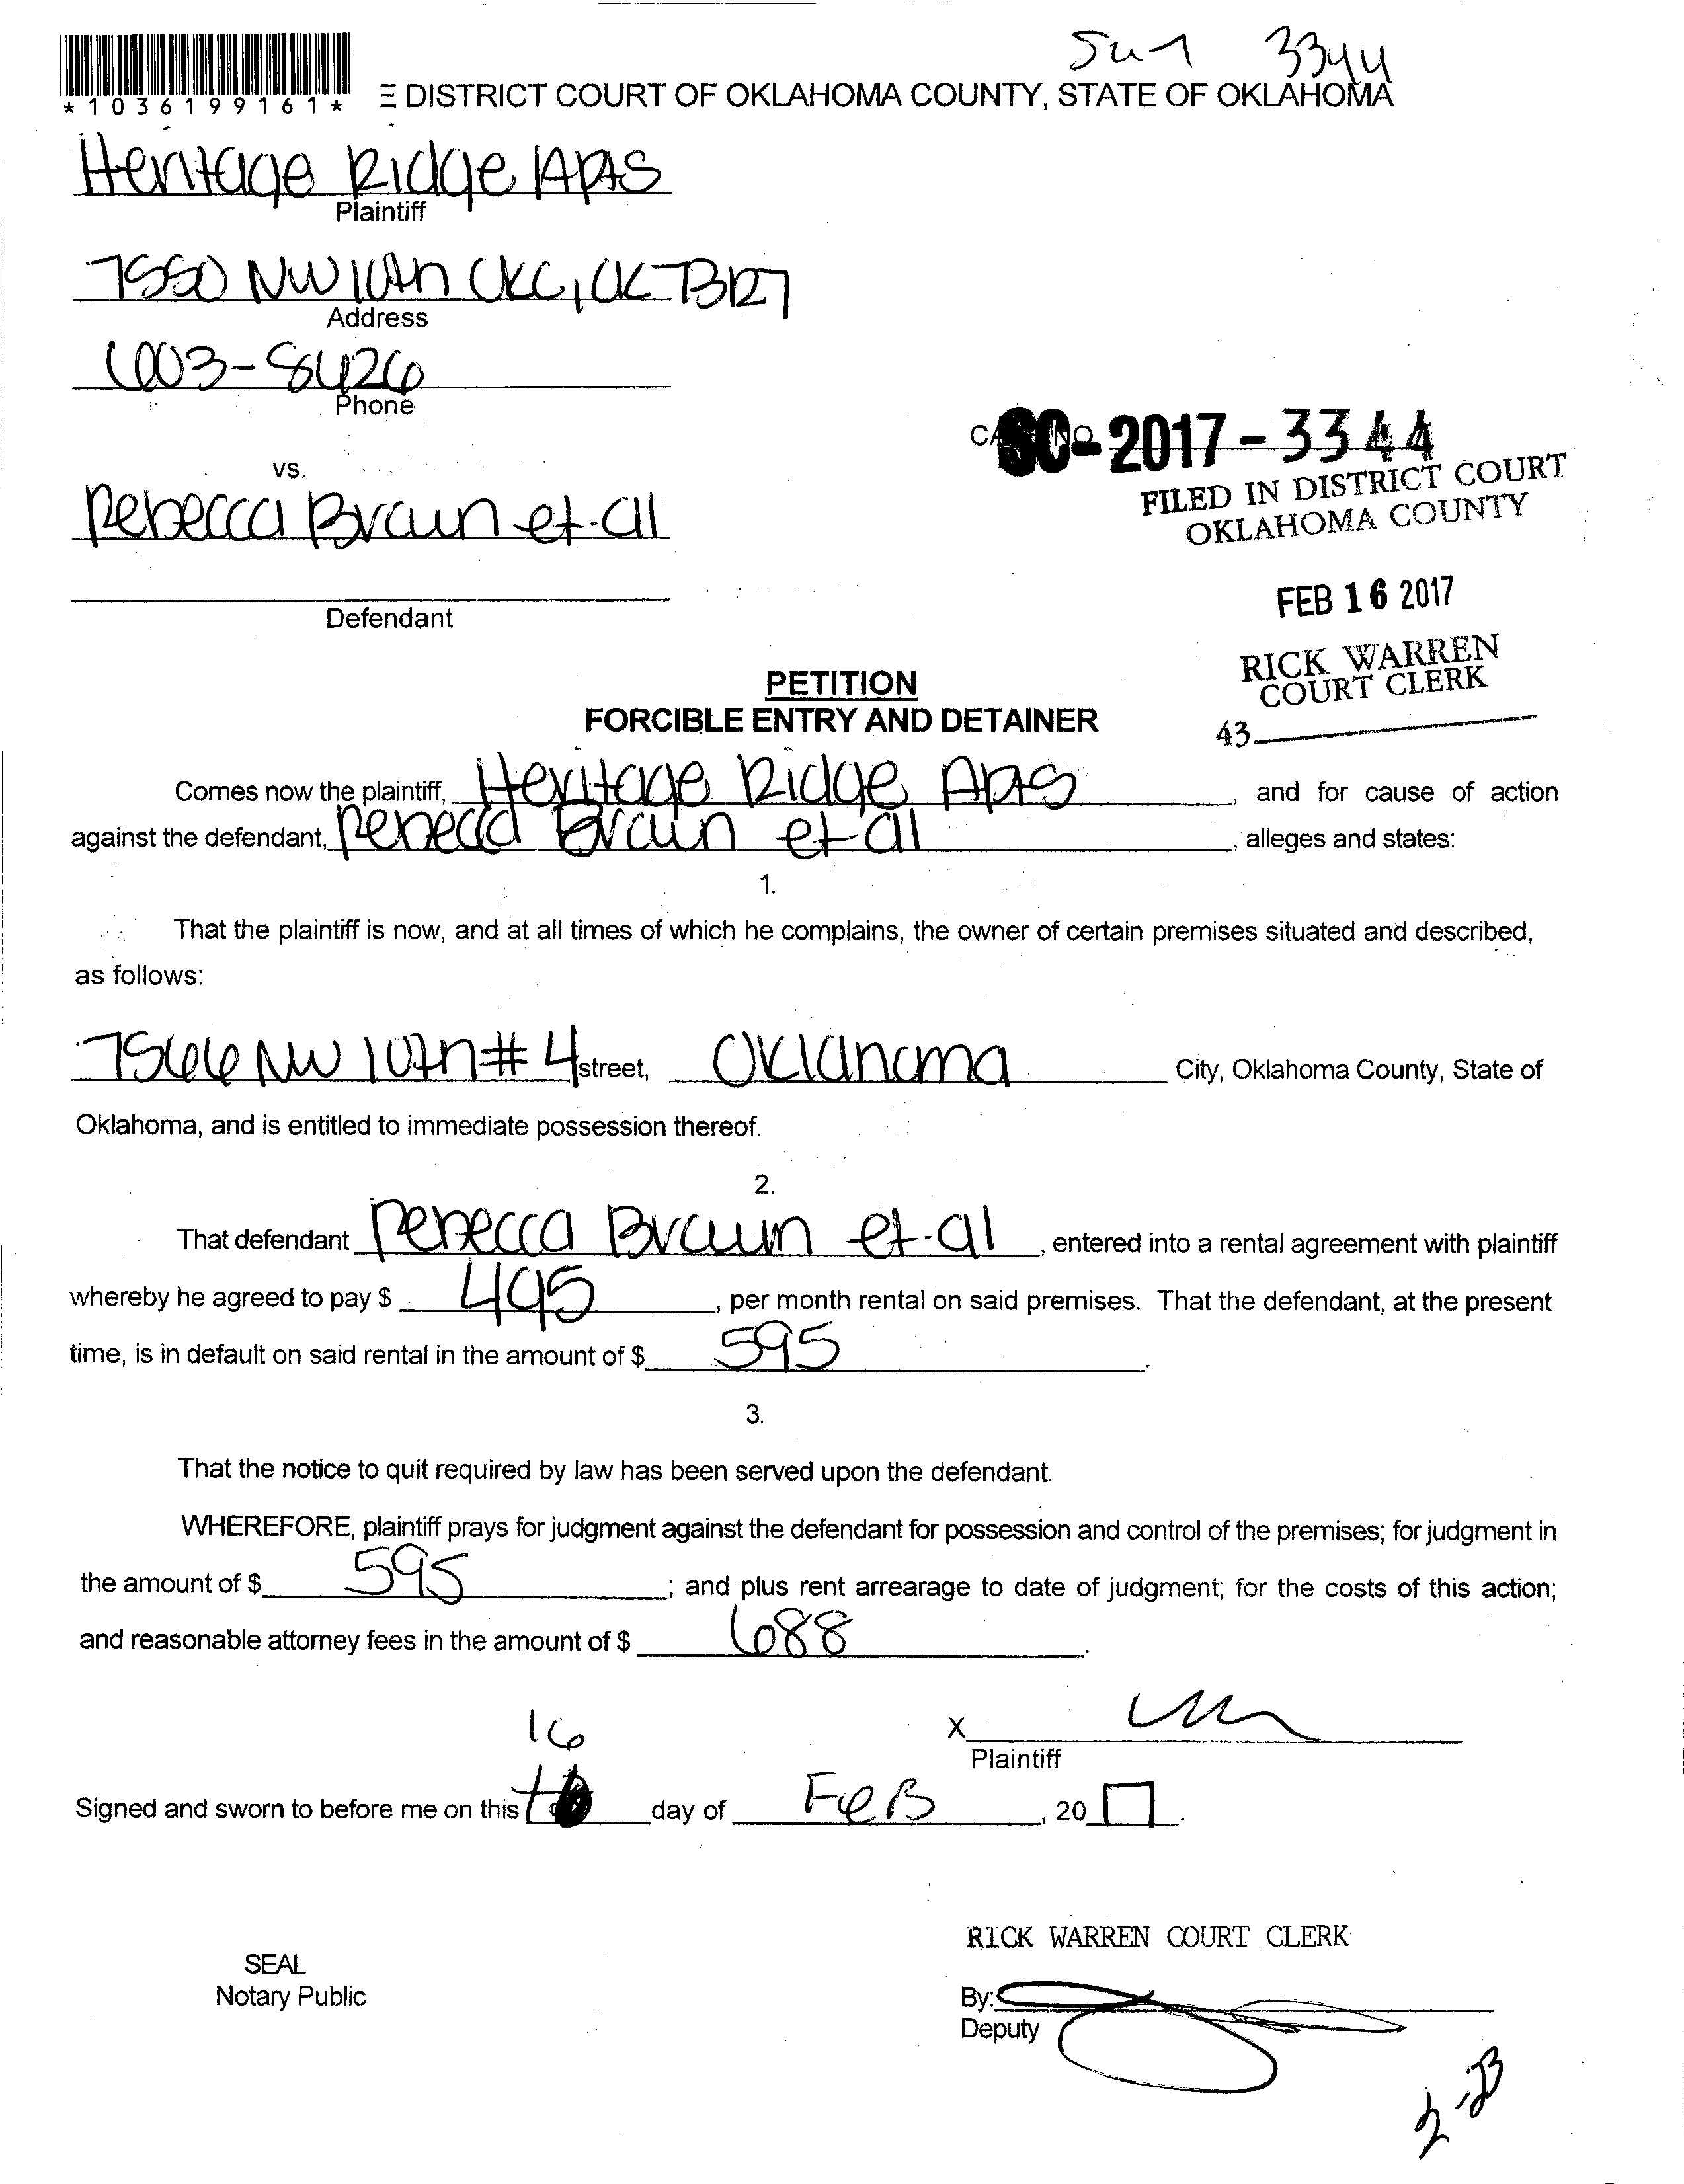 3344
*1036199161* E DISTRICT COURT OF OKLAHOMA COUNTY, STATE OF OKLAHOMA
Heritage Ridge Apts
Plaintiff
7550 NW 10th OKC, OK 73127
Address
603-8426
Phone
vs.
SC-2017-3344
FILED IN DISTRICT COURT
OKLAHOMA COUNTY
Rebecca Braun et-al
FEB 16 2017
Defendant
RICK WARREN
COURT CLERK
43
PETITION
FORCIBLE ENTRY AND DETAINER
Comes now the plaintiff, Heritage Ridge Apts, and for cause of action
against the defendant, Rebecca Braun et-al, alleges and states:
1.
That the plaintiff is now, and at all times of which he complains, the owner of certain premises situated and described,
as follows:
7566 NW 10th #4 street, Oklahoma City, Oklahoma County, State of
Oklahoma, and is entitled to immediate possession thereof.
2.
That defendant Rebecca Braun et-al, entered into a rental agreement with plaintiff
whereby he agreed to pay $ 495, per month rental on said premises. That the defendant, at the present
time, is in default on said rental in the amount of $ 595.
3.
That the notice to quit required by law has been served upon the defendant.
WHEREFORE, plaintiff prays for judgment against the defendant for possession and control of the premises; for judgment in
the amount of $ 595; and plus rent arrearage to date of judgment; for the costs of this action;
and reasonable attorney fees in the amount of $ 688.
X
Plaintiff
16
Signed and sworn to before me on this day of FeB, 20 17.
RICK WARREN COURT CLERK
SEAL
Notary Public
By:
Deputy